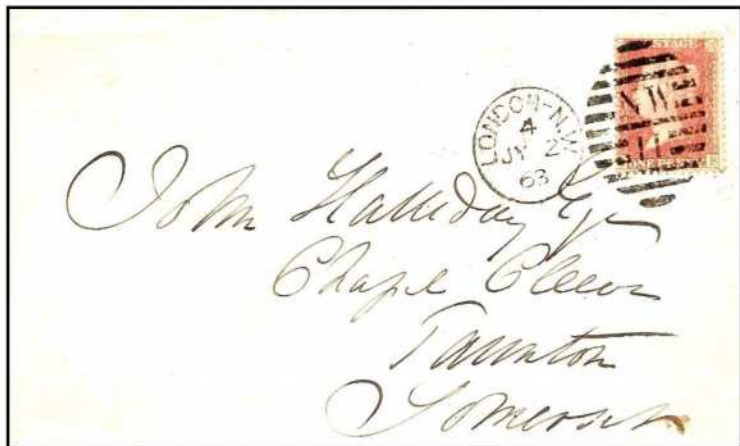 POSTAGE
NW
11
ONE PENNY
LONDON-N.W
4
JY 2
63
John Halliday Esq
Chapel Cleeve
Taunton
Somerset